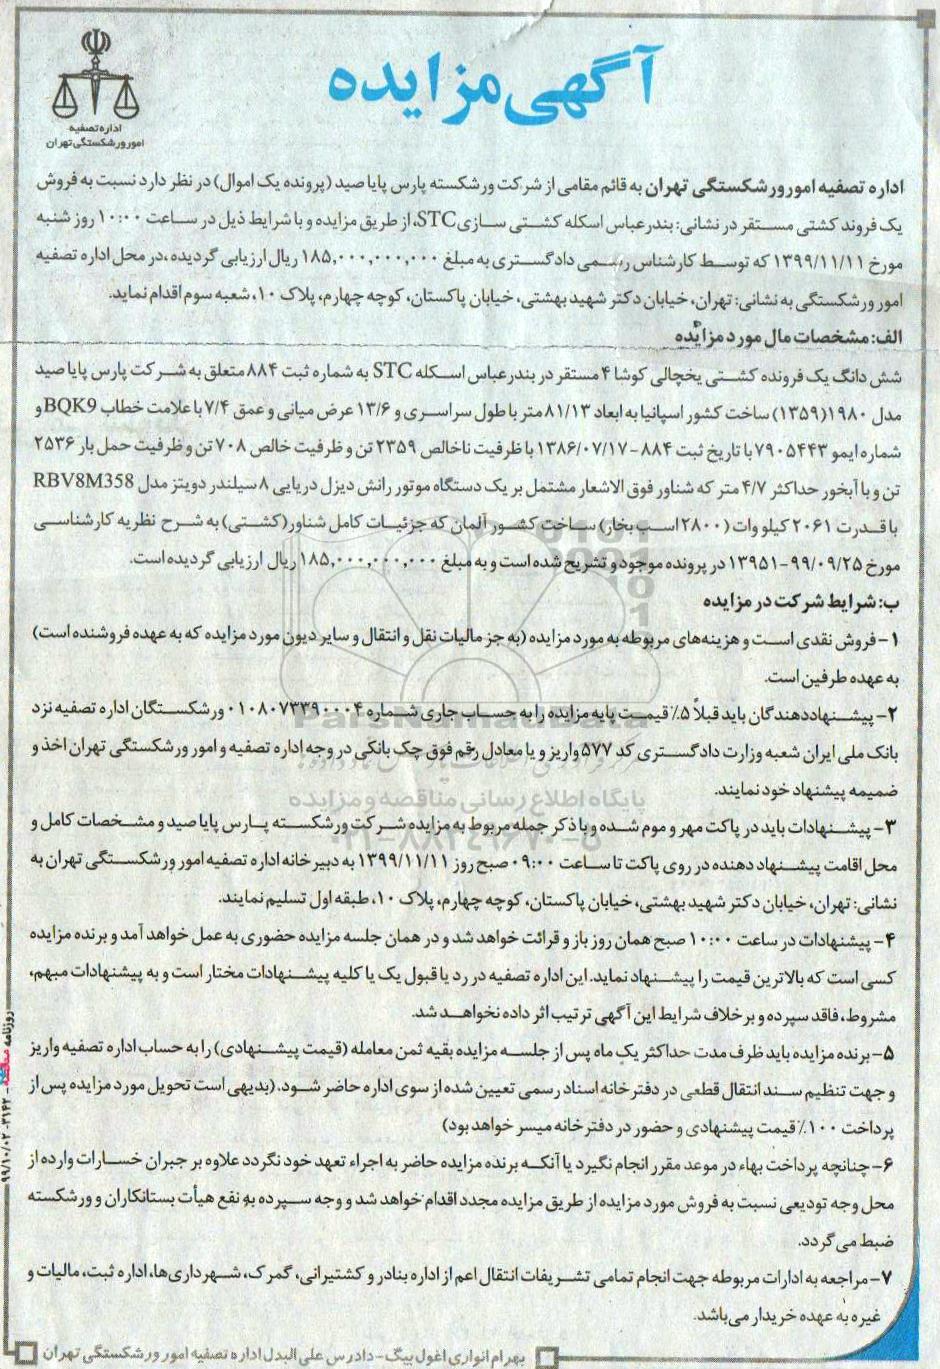 آگهی مزایده
اداره تصفیه
امور ورشکستگی تهران
اداره تصفیه امور ورشکستگی تهران به قائم مقامی از شرکت ورشکسته پارس پایا صید (پرونده یک اموال) در نظر دارد نسبت به فروش
یک فروند کشتی مستقر در نشانی: بندرعباس اسکله کشتی سازی STC، از طریق مزایده و با شرایط ذیل در ساعت ۱۰:۰۰ روز شنبه
مورخ ۱۳۹۹/۱۱/۱۱ که توسط کارشناس رسمی دادگستری به مبلغ ۱۸۵,۰۰۰,۰۰۰,۰۰۰ ریال ارزیابی گردیده، در محل اداره تصفیه
امور ورشکستگی به نشانی: تهران، خیابان دکتر شهید بهشتی، خیابان پاکستان، کوچه چهارم، پلاک ۱۰، شعبه سوم اقدام نماید.
الف: مشخصات مال مورد مزایده
شش دانگ یک فرونده کشتی یخچالی کوشا ۴ مستقر در بندرعباس اسکله STC به شماره ثبت ۸۸۴ متعلق به شرکت پارس پایا صید
مدل ۱۹۸۰ (۱۳۵۹) ساخت کشور اسپانیا به ابعاد ۸۱/۱۳ متر با طول سراسری و ۱۳/۶ عرض میانی و عمق ۷/۴ با علامت خطاب BQK9 و
شماره ایمو ۷۹۰۵۴۴۳ با تاریخ ثبت ۸۸۴ - ۱۳۸۶/۰۷/۱۷ با ظرفیت ناخالص ۲۳۵۹ تن و ظرفیت خالص ۷۰۸ تن و ظرفیت حمل بار ۲۵۳۶
تن و با آبخور حداکثر ۴/۷ متر که شناور فوق الاشعار مشتمل بر یک دستگاه موتور رانش دیزل دریایی ۸ سیلندر دویتز مدل RBV8M358
با قدرت ۲۰۶۱ کیلو وات (۲۸۰۰ اسب بخار) ساخت کشور آلمان که جزئیات کامل شناور (کشتی) به شرح نظریه کارشناسی
مورخ ۹۹/۰۹/۲۵-۱۳۹۵۱ در پرونده موجود و تشریح شده است و به مبلغ ۱۸۵,۰۰۰,۰۰۰,۰۰۰ ریال ارزیابی گردیده است.
ب: شرایط شرکت در مزایده
۱- فروش نقدی است و هزینه‌های مربوطه به مورد مزایده (به جز مالیات نقل و انتقال و سایر دیون مورد مزایده که به عهده فروشنده است)
به عهده طرفین است.
۲- پیشنهاددهندگان باید قبلاً ۵٪ قیمت پایه مزایده را به حساب جاری شماره ۰۱۰۸۰۷۳۳۹۰۰۰۴ ورشکستگان اداره تصفیه نزد
بانک ملی ایران شعبه وزارت دادگستری کد ۵۷۷ واریز و یا معادل رقم فوق چک بانکی در وجه اداره تصفیه و امور ورشکستگی تهران اخذ و
ضمیمه پیشنهاد خود نمایند.
ParsNamadData
پایگاه اطلاع رسانی مناقصه و مزایده
۰۲۱-۸۸۳۴۹۶۷۰-۵
۳- پیشنهادات باید در پاکت مهر و موم شده و با ذکر جمله مربوط به مزایده شرکت ورشکسته پارس پایا صید و مشخصات کامل و
محل اقامت پیشنهاد دهنده در روی پاکت تا ساعت ۰۹:۰۰ صبح روز ۱۳۹۹/۱۱/۱۱ به دبیرخانه اداره تصفیه امور ورشکستگی تهران به
نشانی: تهران، خیابان دکتر شهید بهشتی، خیابان پاکستان، کوچه چهارم، پلاک ۱۰، طبقه اول تسلیم نمایند.
۴- پیشنهادات در ساعت ۱۰:۰۰ صبح همان روز باز و قرائت خواهد شد و در همان جلسه مزایده حضوری به عمل خواهد آمد و برنده مزایده
کسی است که بالاترین قیمت را پیشنهاد نماید. این اداره تصفیه در رد یا قبول یک یا کلیه پیشنهادات مختار است و به پیشنهادات مبهم،
مشروط، فاقد سپرده و برخلاف شرایط این آگهی ترتیب اثر داده نخواهد شد.
۵- برنده مزایده باید ظرف مدت حداکثر یک ماه پس از جلسه مزایده بقیه ثمن معامله (قیمت پیشنهادی) را به حساب اداره تصفیه واریز
و جهت تنظیم سند انتقال قطعی در دفترخانه اسناد رسمی تعیین شده از سوی اداره حاضر شود. (بدیهی است تحویل مورد مزایده پس از
پرداخت ۱۰۰٪ قیمت پیشنهادی و حضور در دفترخانه میسر خواهد بود)
۶- چنانچه پرداخت بهاء در موعد مقرر انجام نگیرد یا آنکه برنده مزایده حاضر به اجراء تعهد خود نگردد علاوه بر جبران خسارات وارده از
محل وجه تودیعی نسبت به فروش مورد مزایده از طریق مزایده مجدد اقدام خواهد شد و وجه سپرده به نفع هیأت بستانکاران و ورشکسته
ضبط می گردد.
۷- مراجعه به ادارات مربوطه جهت انجام تمامی تشریفات انتقال اعم از اداره بنادر و کشتیرانی، گمرک، شهرداری‌ها، اداره ثبت، مالیات و
غیره به عهده خریدار می‌باشد.
بهرام انواری اغول بیگ - دادرس علی البدل اداره تصفیه امور ورشکستگی تهران
روزنامه ۳۱۴۲- ۹۹/۱۰/۰۲